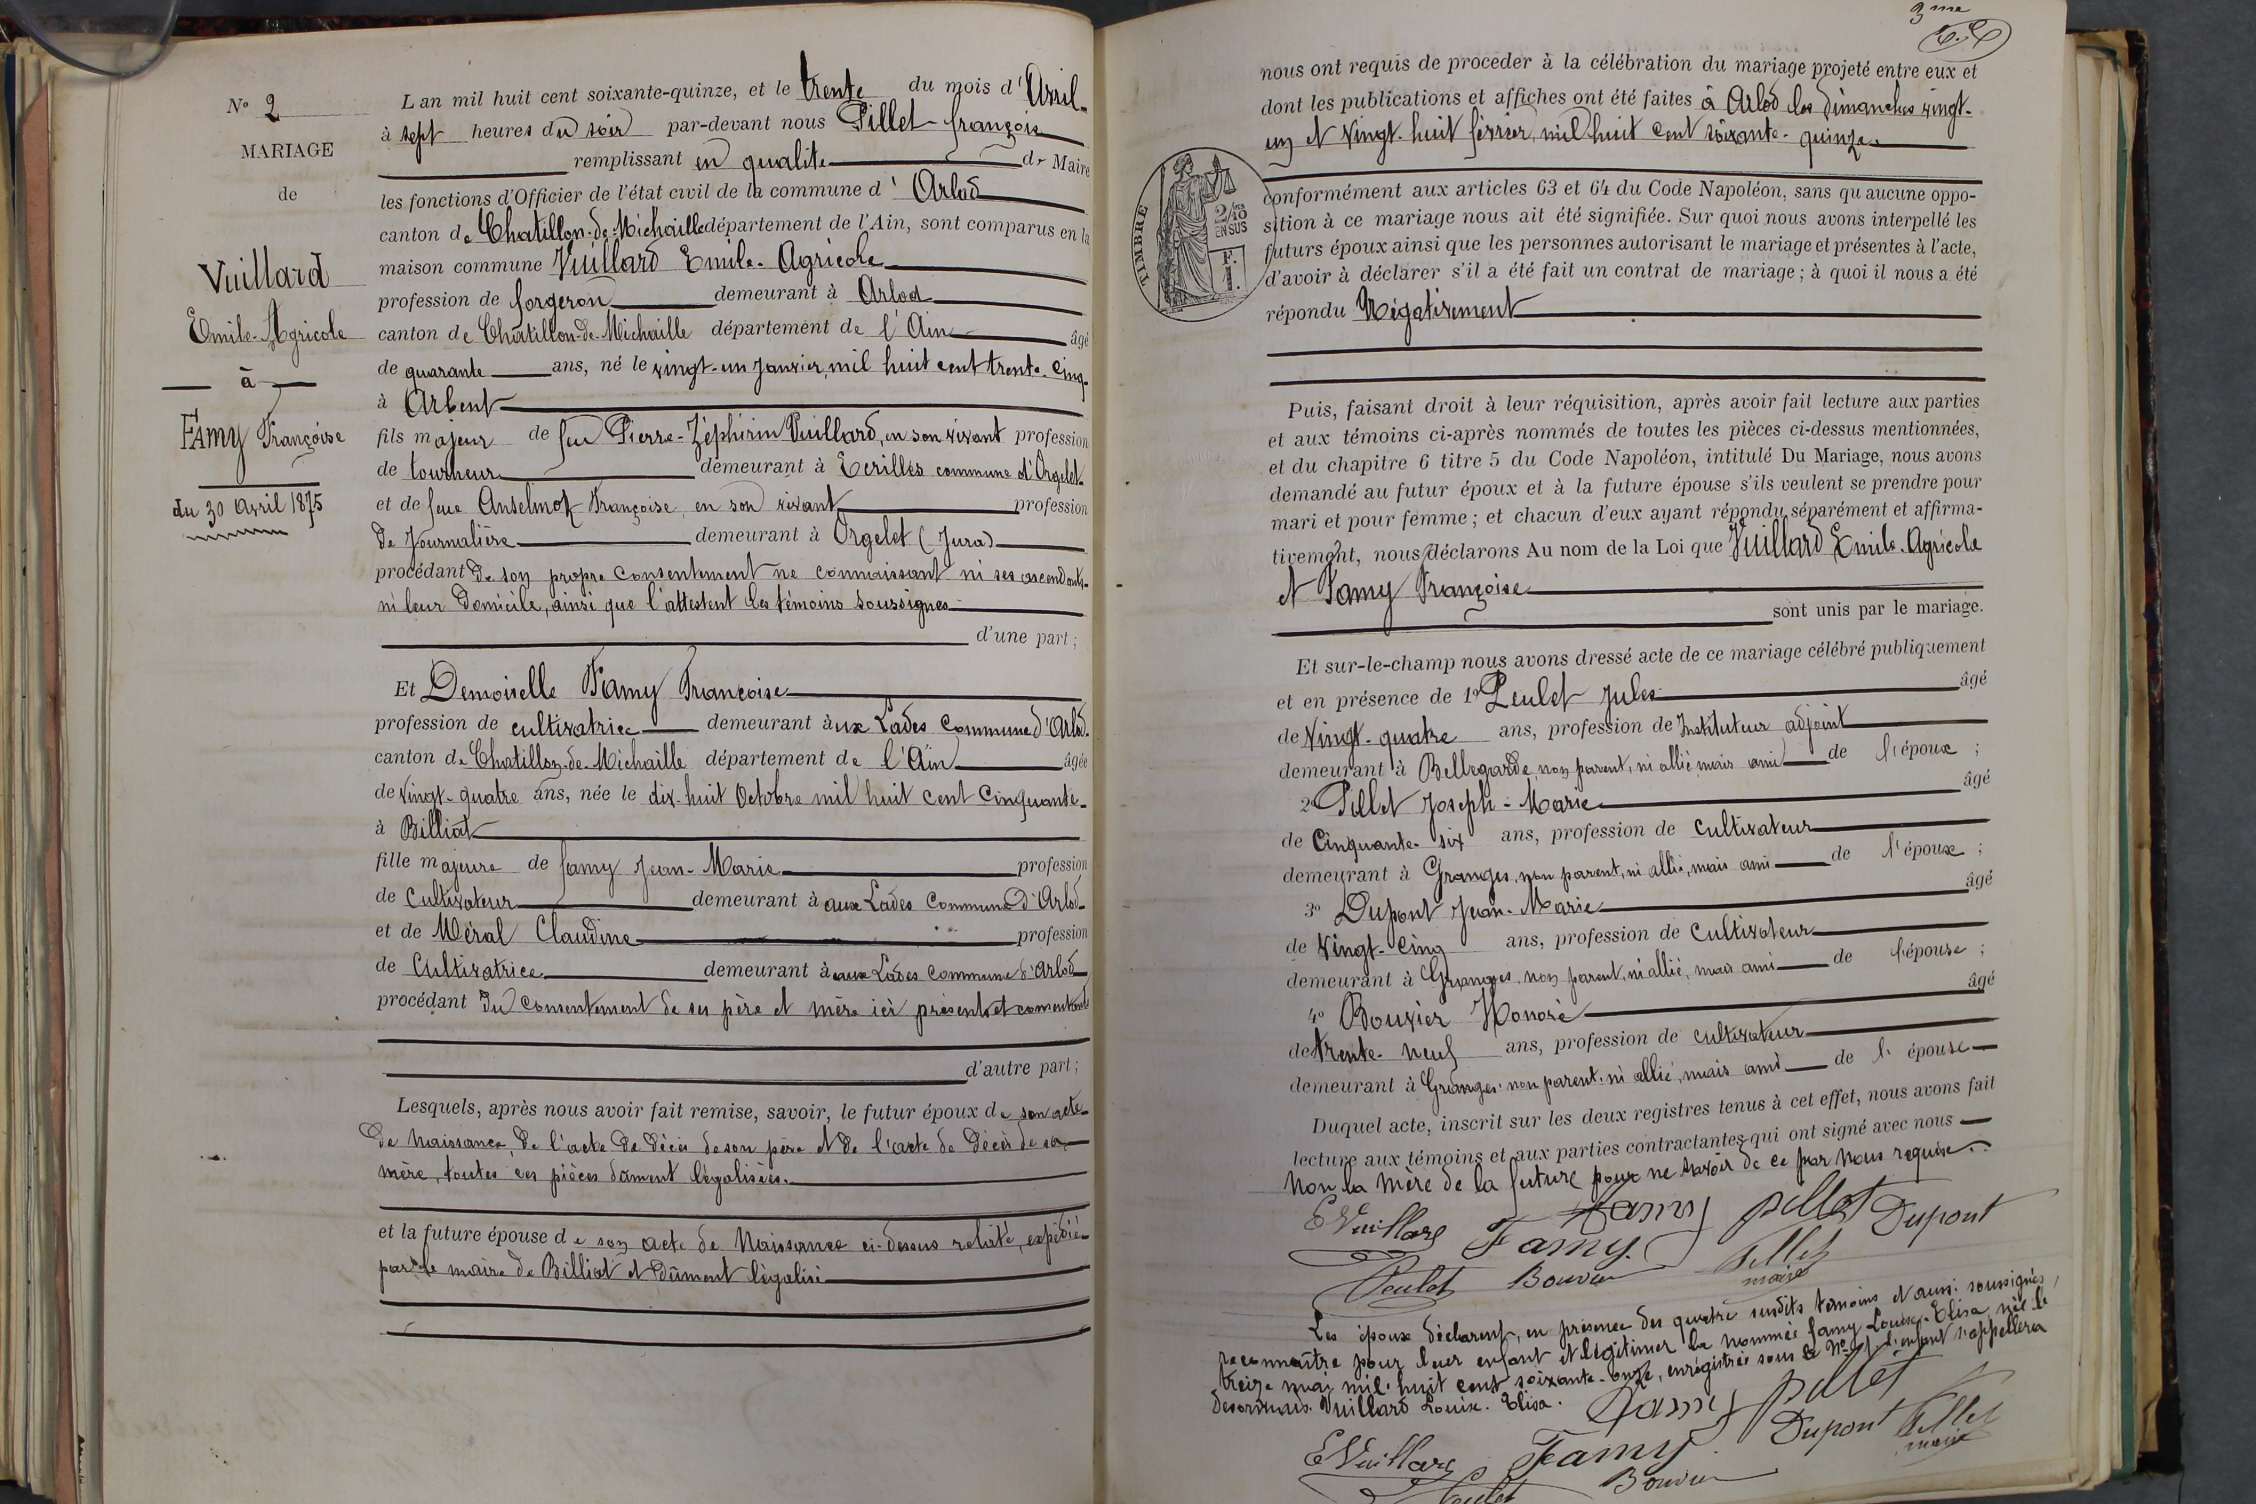 N° 2
MARIAGE
de
Vuillard
Emile-Agricole
à
Famy Françoise
du 30 Avril 1875
L'an mil huit cent soixante-quinze, et le trente du mois d'Avril
à sept heures du soir par-devant nous Pillet françois
remplissant en qualité de Maire
les fonctions d'Officier de l'état civil de la commune d' Arlod
canton de Chatillon-de-Michaille département de l'Ain, sont comparus en la
maison commune Vuillard Emile-Agricole
profession de forgeron demeurant à Arlod
canton de Châtillon-de-Michaille département de l'Ain âgé
de quarante ans, né le vingt-un Janvier, mil huit cent trente-cinq
à Arbent
fils majeur de feu Pierre-Zéphirin Vuillard, en son vivant profession
de tourneur demeurant à Ecrilles commune d'Orgelet
et de feue Anselmot Françoise, en son vivant profession
de Journalière demeurant à Orgelet (Jura)
procédant de son propre consentement ne connaissant ni ses ascendants
ni leur domicile, ainsi que l'attestent les témoins soussignés
d'une part;
Et Demoiselle Famy Françoise
profession de cultivatrice demeurant aux Lades Commune d'Arlod
canton de Chatillon-de-Michaille département de l'Ain âgée
de vingt-quatre ans, née le dix-huit Octobre mil huit cent cinquante
à Billiat
fille majeure de famy Jean-Marie profession
de Cultivateur demeurant à aux Lades Commune d'Arlod
et de Méral Claudine profession
de Cultivatrice demeurant à aux Lades commune d'Arlod
procédant du consentement de ses père et mère ici présents et consentants
d'autre part;
Lesquels, après nous avoir fait remise, savoir, le futur époux de son acte
de Naissance, de l'acte de décès de son père et de l'acte de décès de sa
mère, toutes ces pièces dûment légalisées.
et la future épouse de son acte de Naissance ci-dessus relaté, expédié
par le maire de Billiat et dûment légalisé
3me
nous ont requis de procéder à la célébration du mariage projeté entre eux et
dont les publications et affiches ont été faites à Arlod les dimanches vingt-
un et vingt-huit février, mil huit cent soixante-quinze
TIMBRE
2/10
EN SUS
F.
1.
conformément aux articles 63 et 64 du Code Napoléon, sans qu'aucune oppo-
sition à ce mariage nous ait été signifiée. Sur quoi nous avons interpellé les
futurs époux ainsi que les personnes autorisant le mariage et présentes à l'acte,
d'avoir à déclarer s'il a été fait un contrat de mariage; à quoi il nous a été
répondu Négativement
Puis, faisant droit à leur réquisition, après avoir fait lecture aux parties
et aux témoins ci-après nommés de toutes les pièces ci-dessus mentionnées,
et du chapitre 6 titre 5 du Code Napoléon, intitulé Du Mariage, nous avons
demandé au futur époux et à la future épouse s'ils veulent se prendre pour
mari et pour femme; et chacun d'eux ayant répondu séparément et affirma-
tivement, nous déclarons Au nom de la Loi que Vuillard Emile-Agricole
et Famy Françoise
sont unis par le mariage.
Et sur-le-champ nous avons dressé acte de ce mariage célébré publiquement
et en présence de 1° Peulet Jules âgé
de Vingt-quatre ans, profession de Instituteur adjoint
demeurant à Bellegarde, non parent, ni allié, mais ami de l'époux;
2° Pillet Joseph-Marie âgé
de Cinquante-six ans, profession de Cultivateur
demeurant à Granges, non parent, ni allié, mais ami de l'époux;
3° Dupont Jean-Marie âgé
de Vingt-cinq ans, profession de Cultivateur
demeurant à Granges, non parent, ni allié, mais ami de l'épouse;
4° Bouvier Honoré âgé
de trente-neuf ans, profession de cultivateur
demeurant à Granges, non parent, ni allié, mais ami de l'épouse
Duquel acte, inscrit sur les deux registres tenus à cet effet, nous avons fait
lecture aux témoins et aux parties contractantes qui ont signé avec nous
Non la mère de la future pour ne savoir de ce par nous requise.
EVuillard Famy pillet Dupont
Famy. Pillet
Peulet Bouvier maire
Les époux déclarent, en présence des quatre susdits témoins et aussi soussignés,
reconnaître pour leur enfant et légitimer la nommée famy Louise-Elisa, née le
treize mai mil huit cent soixante-onze, enregistrée sous le N° l'enfant s'appellera
désormais Vuillard Louise-Elisa.
Famy pillet
EVuillard Famy Dupont Pillet
maire
Peulet Bouvier